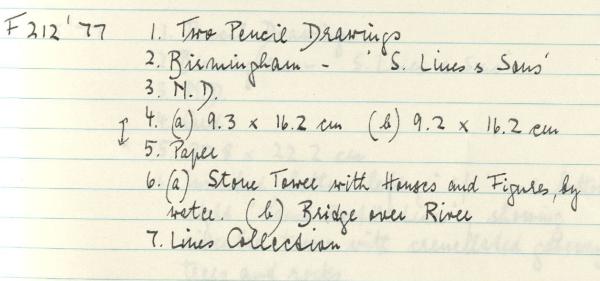 F 212 ' 77 1. Two Pencil Drawings
2. Birmingham - 'S. Lines & Sons'
3. N.D.
↕ 4. (a) 9.3 x 16.2 cm (b) 9.2 x 16.2 cm
5. Paper
6. (a) Stone Tower with Houses and Figures, by
water. (b) Bridge over River
7. Lines Collection